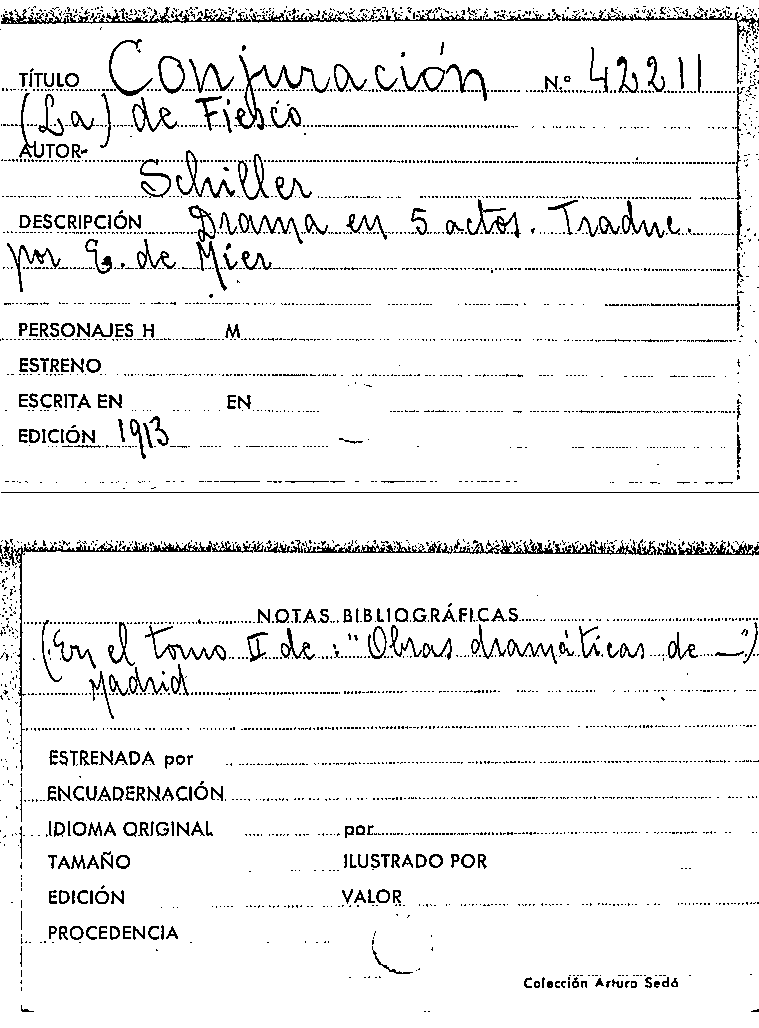 TÍTULO Conjuración N.º 42211
(La) de Fiesco
AUTOR-
Schiller
DESCRIPCIÓN Drama en 5 actos. Traduc.
por E. de Mier
PERSONAJES H M
ESTRENO
ESCRITA EN EN
EDICIÓN 1913
NOTAS BIBLIOGRÁFICAS
(En el tomo II de: "Obras dramáticas de —")
Madrid
ESTRENADA por
ENCUADERNACIÓN
IDIOMA ORIGINAL por
TAMAÑO ILUSTRADO POR
EDICIÓN VALOR
PROCEDENCIA
Colección Arturo Sedó